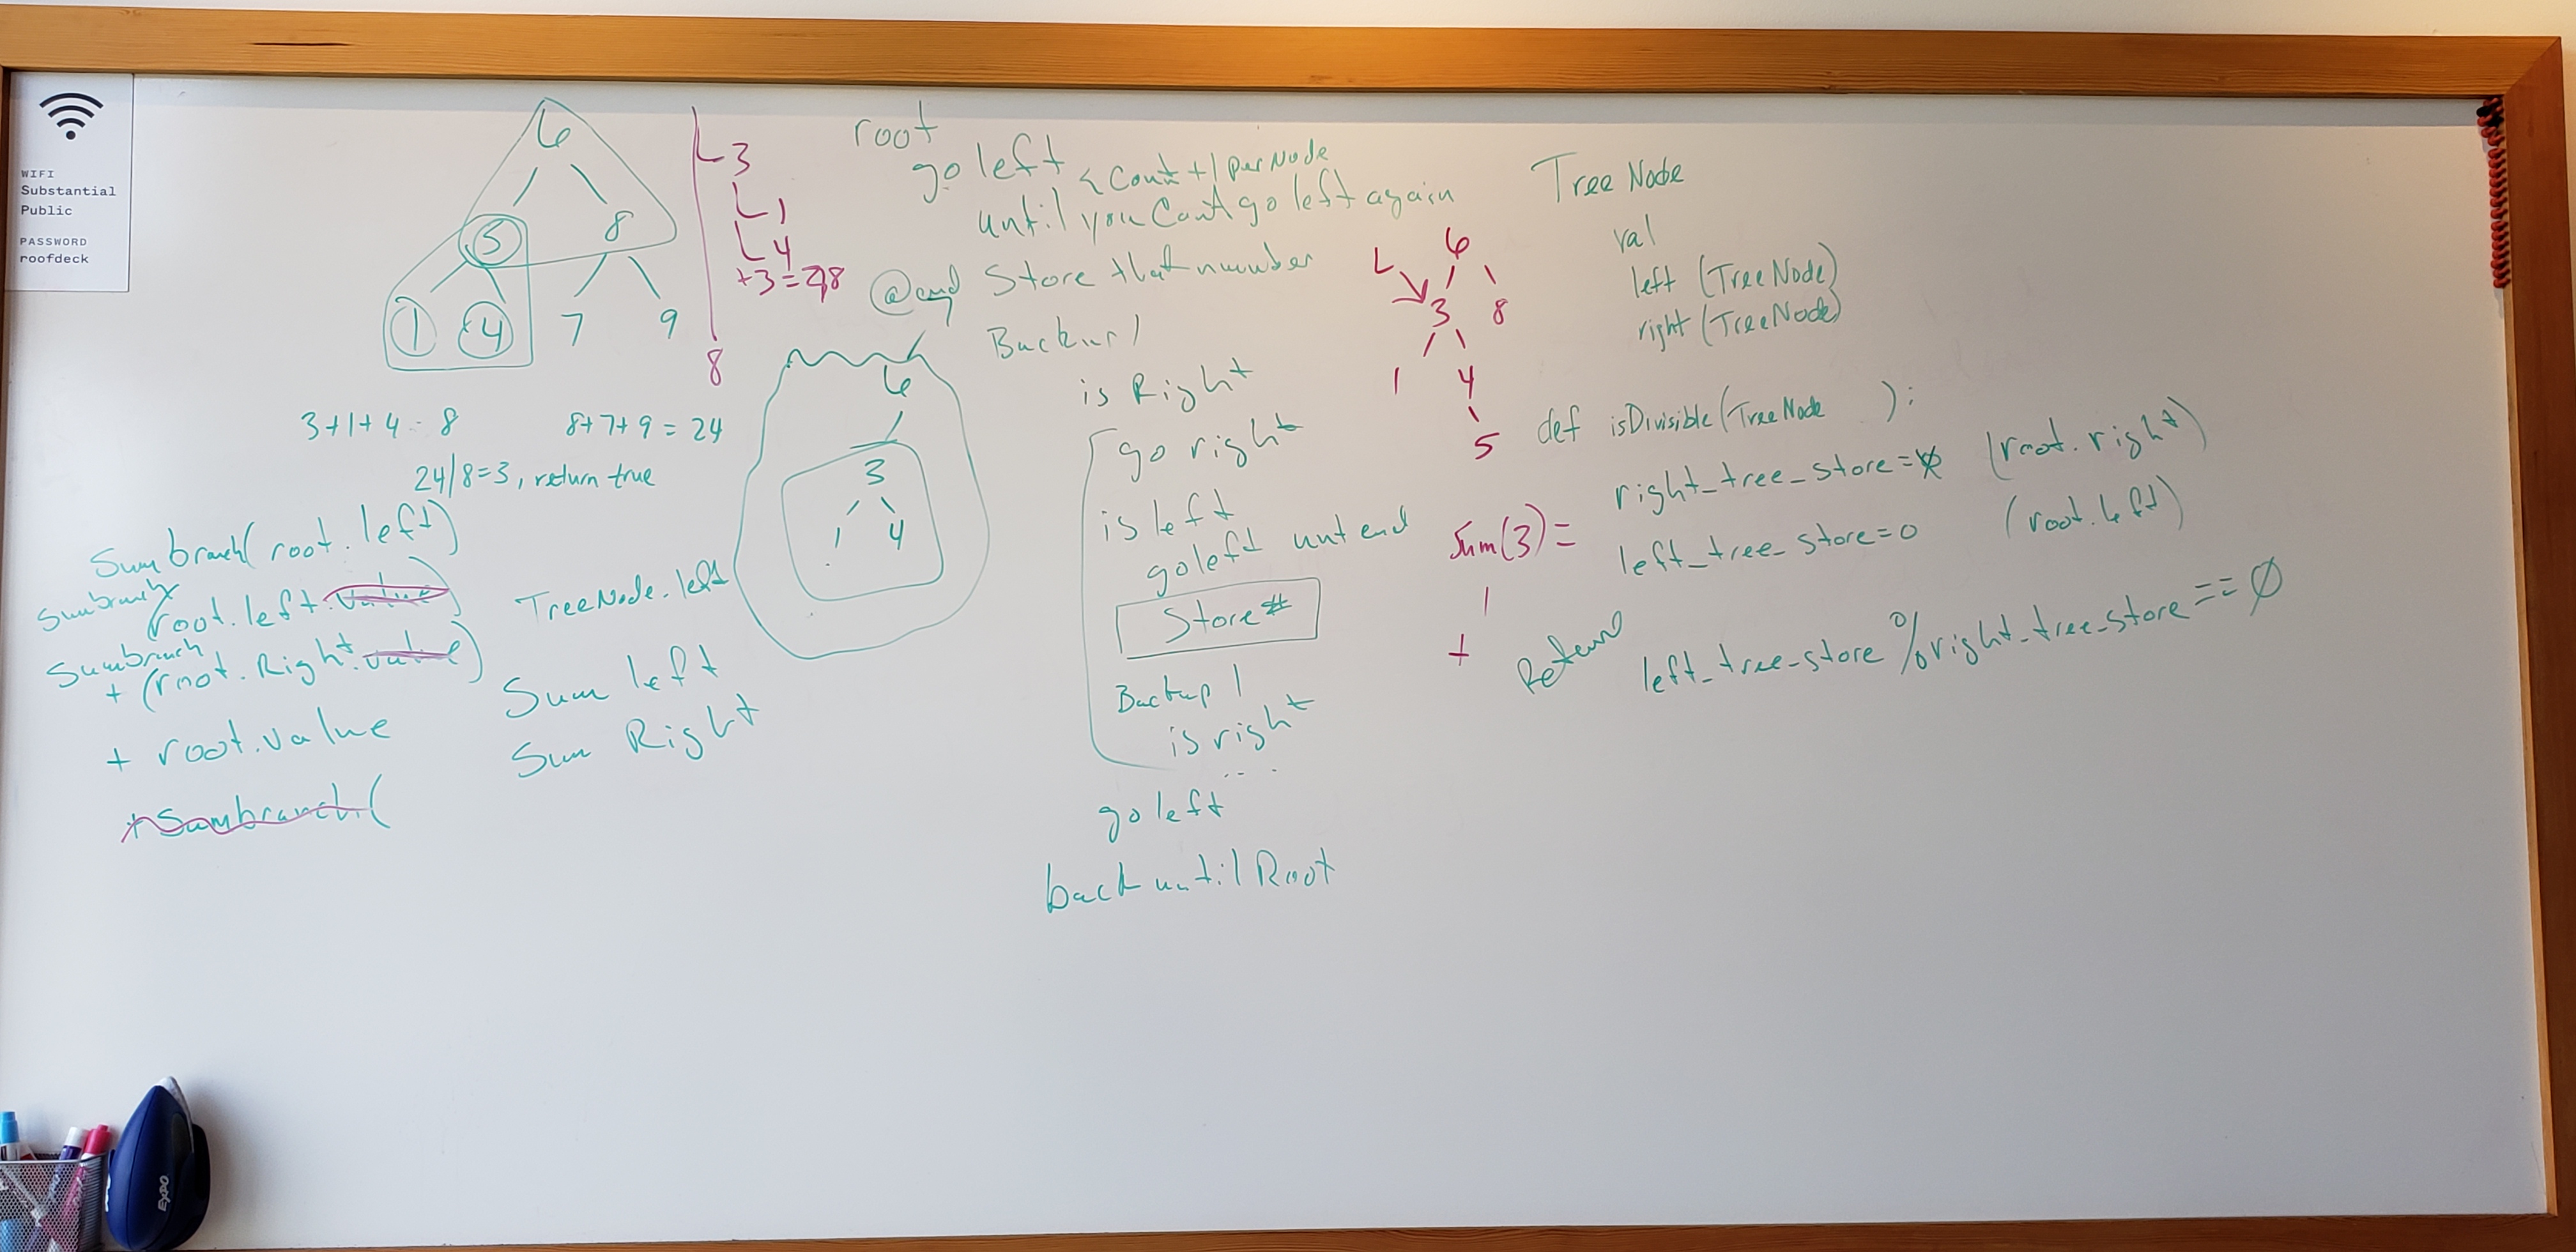 WIFI
Substantial
Public
PASSWORD
roofdeck
6
3 8
1 4 7 9
3+1+4 = 8
8+7+9 = 24
24/8=3, return true
Sumbranch(root.left)
Sumbranch
(root.left.value)
Sumbranch
+ (root.Right.value)
+ root.value
+Sumbranch(
TreeNode.left
Sum left
Sum Right
L3
L1
L4
+3=8
8
6
3
1 4
root
go left < Count +1 per Node
until you Can't go left again
@end Store that number
Backup 1
is Right
go right
is left
go left unt end
Store #
Backup 1
is right
...
go left
back until Root
6
L
3 8
1 4
5
Sum(3)=
1
+
Tree Node
val
left (TreeNode)
right (TreeNode)
def isDivisible(TreeNode ):
right_tree_store=0 (root.right)
left_tree_store=0 (root.left)
Return left_tree_store % right_tree_store == 0
EXPO